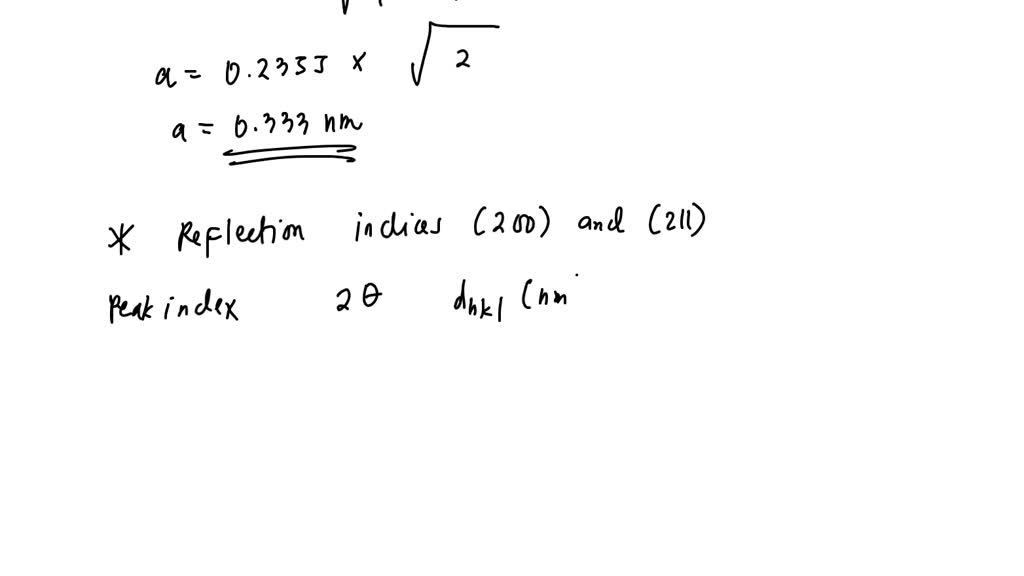 a = 0.2355 × √2
a = 0.333 nm
* Reflection indices (200) and (211)
Peak index 2θ dhkl (nm